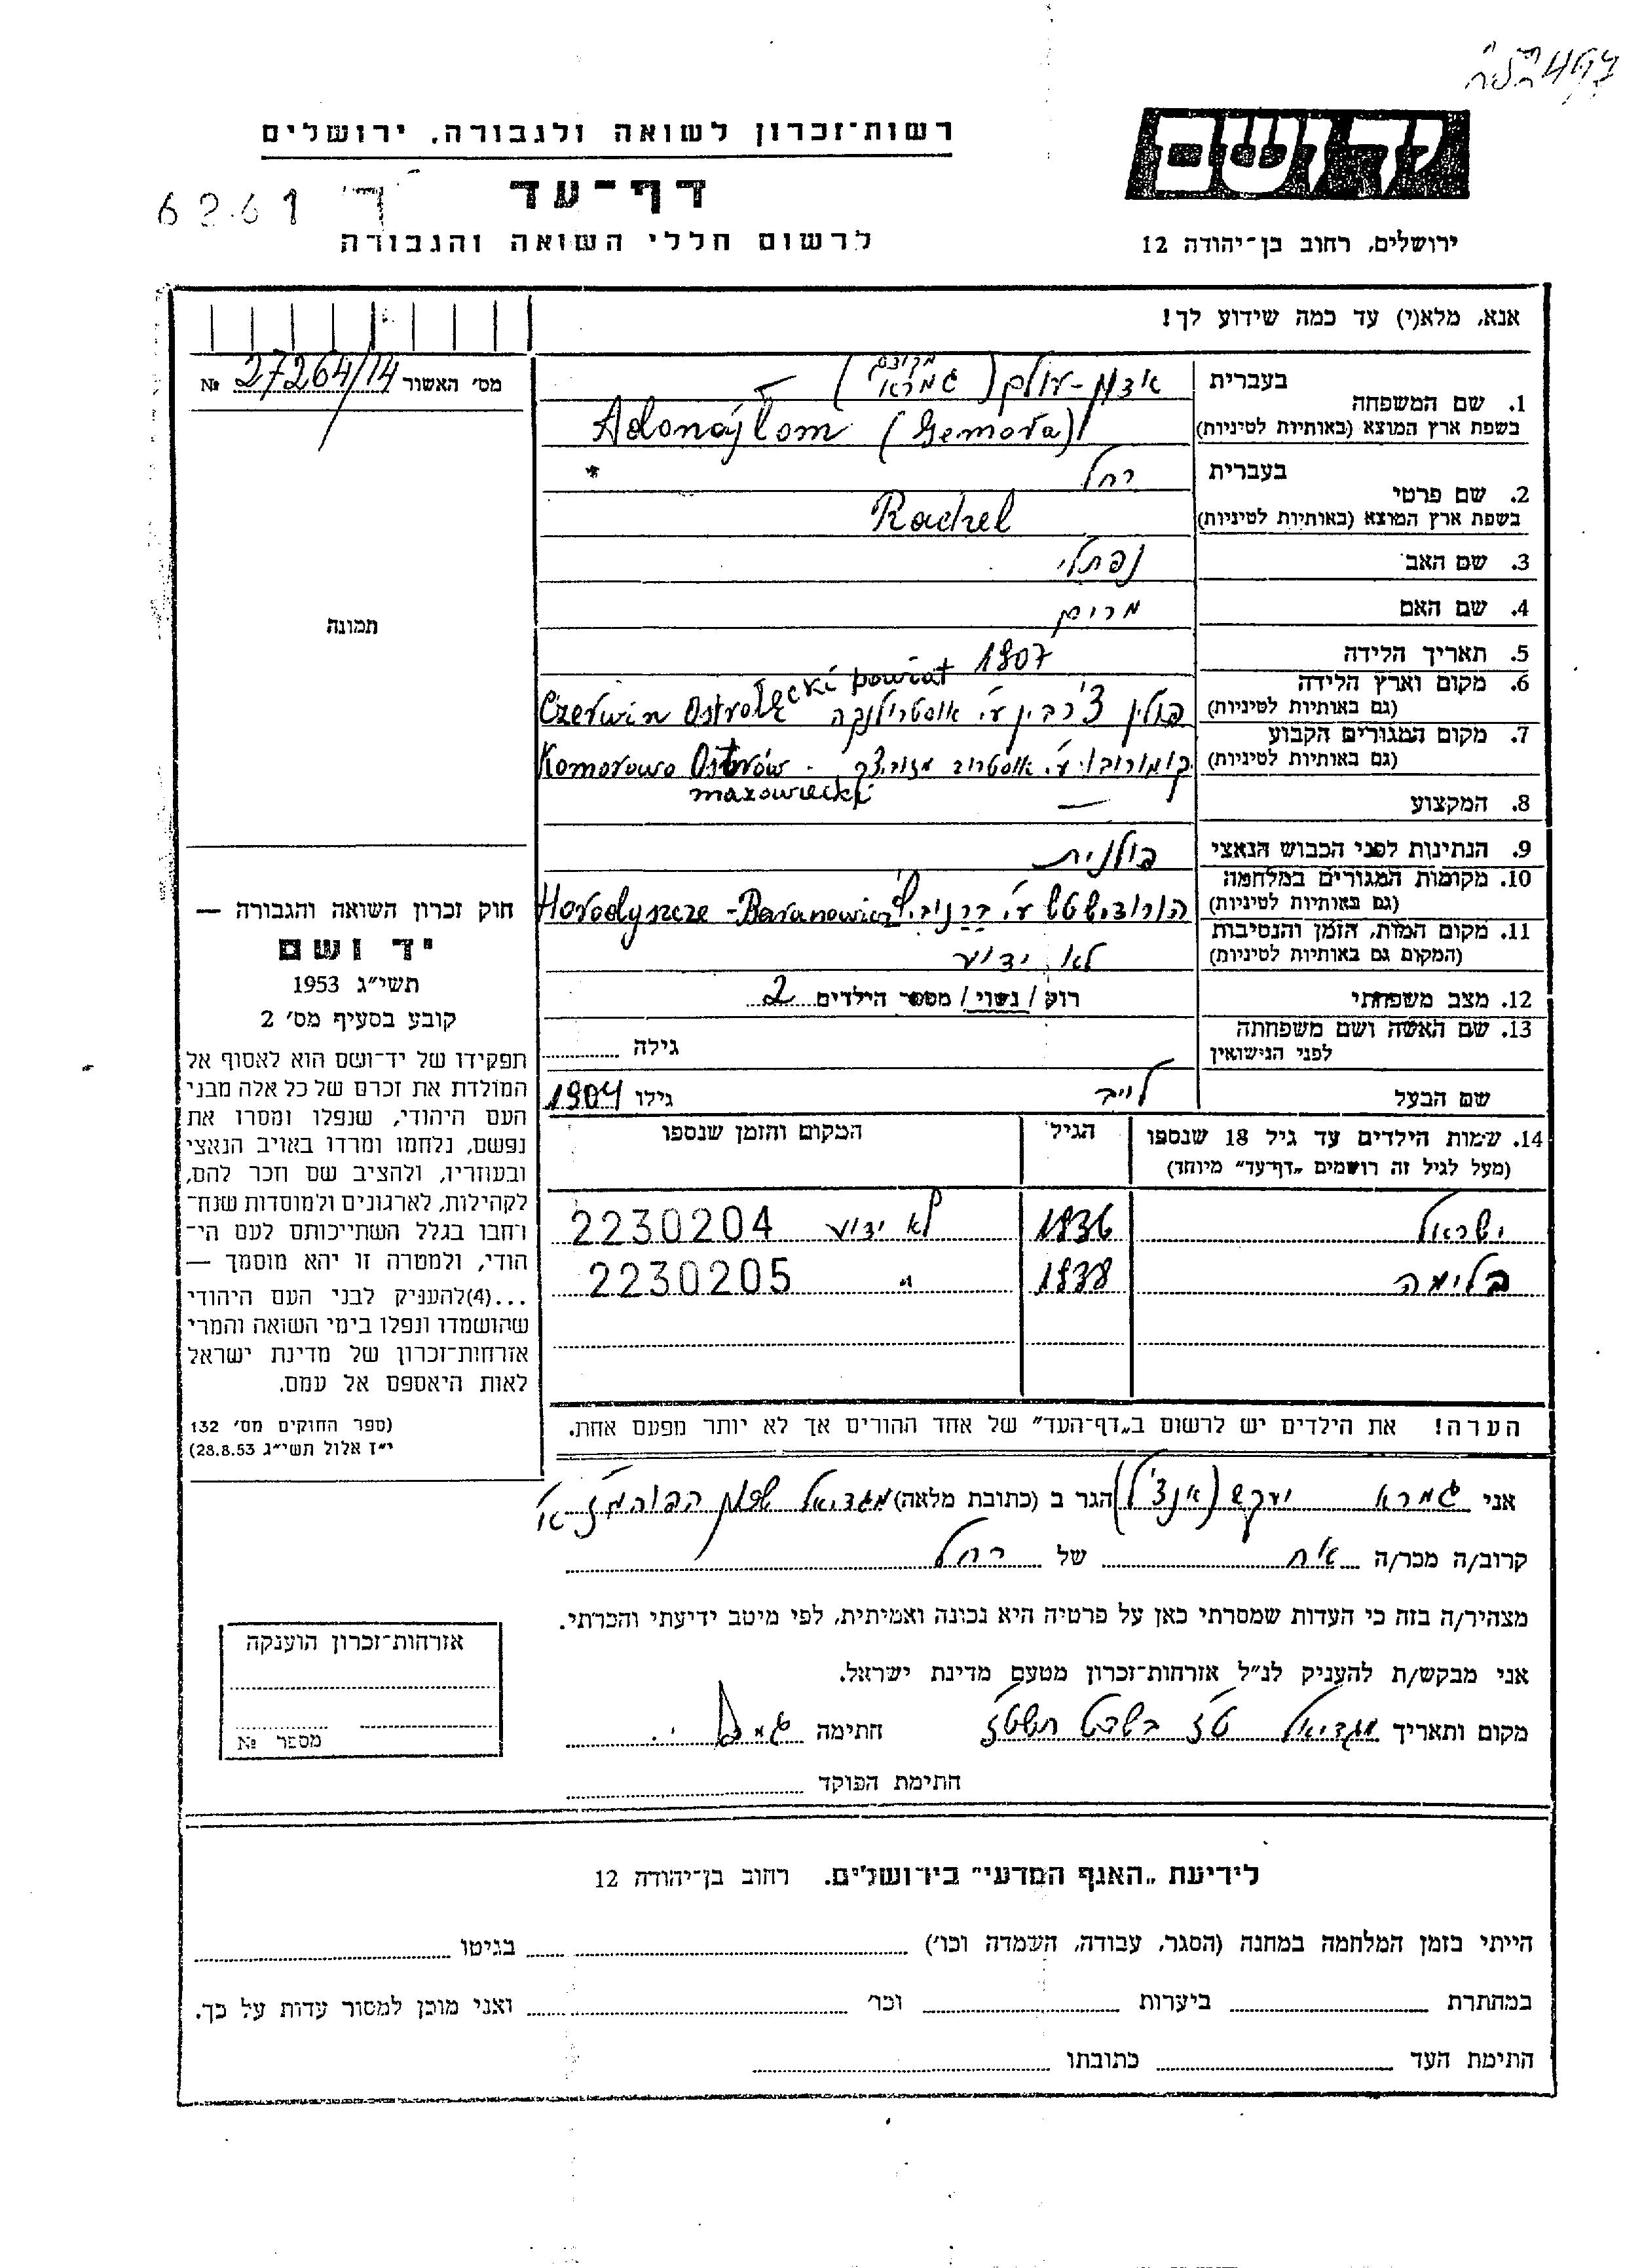 רשות־זכרון לשואה ולגבורה, ירושלים
יד ושם
דף־עד
ד׳ 6261
לרשום חללי השואה והגבורה
ירושלים, רחוב בן־יהודה 12
אנא, מלא(י) עד כמה שידוע לך!
מס׳ האשור 27264/14 №
1. שם המשפחה
בעברית
אדון-עולם (מקודם גמרא)
בשפת ארץ המוצא (באותיות לטיניות)
Adonájlom (Gemora)
2. שם פרטי
בעברית
רחל
בשפת ארץ המוצא (באותיות לטיניות)
Rachel
3. שם האב נפתלי
4. שם האם מרים
תמונה
5. תאריך הלידה 1907
6. מקום וארץ הלידה
(גם באותיות לטיניות)
פולין צ׳רבין ע״י אוסטרולנקה Czerwin Ostrołęcki powiat
7. מקום המגורים הקבוע
(גם באותיות לטיניות)
קומורובו ע״י אוסטרוב מזוביצק - Komorowo Ostrów mazowiecki
8. המקצוע —
9. הנתינות לפני הכבוש הנאצי פולנית
10. מקומות המגורים במלחמה
(גם באותיות לטיניות)
הורודישטש ע״י ברנוביץ Horodyszcze - Baranowicz
11. מקום המות, הזמן והנסיבות
(המקום גם באותיות לטיניות)
לא ידוע
12. מצב משפחתי רוק / נשוי / מספר הילדים 2
13. שם האשה ושם משפחתה
לפני הנישואין
גילה
שם הבעל לייב גילו 1904
14. שמות הילדים עד גיל 18 שנספו
(מעל לגיל זה רושמים „דף־עד״ מיוחד)
הגיל
המקום והזמן שנספו
ישראל 1936 לא ידוע 2230204
בלימה 1938 " 2230205
הערה! את הילדים יש לרשום ב„דף־העד״ של אחד ההורים אך לא יותר מפעם אחת.
חוק זכרון השואה והגבורה —
יד ושם
תשי״ג 1953
קובע בסעיף מס׳ 2
תפקידו של יד־ושם הוא לאסוף אל
המולדת את זכרם של כל אלה מבני
העם היהודי, שנפלו ומסרו את
נפשם, נלחמו ומרדו באויב הנאצי
ובעוזריו, ולהציב שם וזכר להם,
לקהילות, לארגונים ולמוסדות שנח־
רחבו בגלל השתייכותם לעם הי־
הודי, ולמטרה זו יהא מוסמך —
...(4)להעניק לבני העם היהודי
שהושמדו ונפלו בימי השואה והמרי
אזרחות־זכרון של מדינת ישראל
לאות היאספם אל עמם.
(ספר החוקים מס׳ 132
י״ז אלול תשי״ג 28.8.53)
אני גמרא יעקב (אנצ׳ל) הגר ב (כתובת מלאה) מגדיאל שכון הפוהמ״ז
קרוב/ה מכר/ה אח של רחל
מצהיר/ה בזה כי העדות שמסרתי כאן על פרטיה היא נכונה ואמיתית, לפי מיטב ידיעתי והכרתי.
אני מבקש/ת להעניק לנ״ל אזרחות־זכרון מטעם מדינת ישראל.
מקום ותאריך מגדיאל ט״ז בשבט תשט״ז חתימה
חתימת הפוקד
אזרחות־זכרון הוענקה
מספר №
לידיעת „האגף המדעי״ בירושלים. רחוב בן־יהודה 12
הייתי בזמן המלחמה במחנה (הסגר, עבודה, השמדה וכו׳) בגיטו
במחתרת ביערות וכו׳ ואני מוכן למסור עדות על כך.
חתימת העד כתובתו